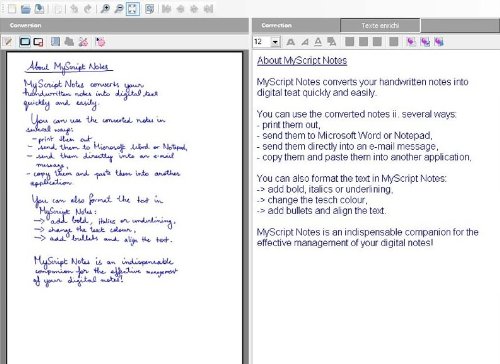 Conversion
About MyScript Notes
MyScript Notes converts your
handwritten notes into digital text
quickly and easily.
You can use the converted notes in
several ways:
- print them out,
- send them to Microsoft Word or Notepad,
- send them directly into an e-mail
message,
- copy them and paste them into another
application.
You can also format the text in
MyScript Notes:
-> add bold, italics or underlining,
-> change the text colour,
-> add bullets and align the text.
MyScript Notes is an indispensable
companion for the effective management
of your digital notes!
Correction
Texte enrichi
12
About MyScript Notes
MyScript Notes converts your handwritten notes into
digital teat quickly and easily.
You can use the converted notes ii. several ways:
- print them out,
- send them to Microsoft Word or Notepad,
- send them directly into an e-mail message,
- copy them and paste them into another application,
You can also format the text in MyScript Notes:
-> add bold, italics or underlining,
-> change the tesch colour,
-> add bullets and align the text.
MyScript Notes is an indispensable companion for the
effective management of your digital notes!